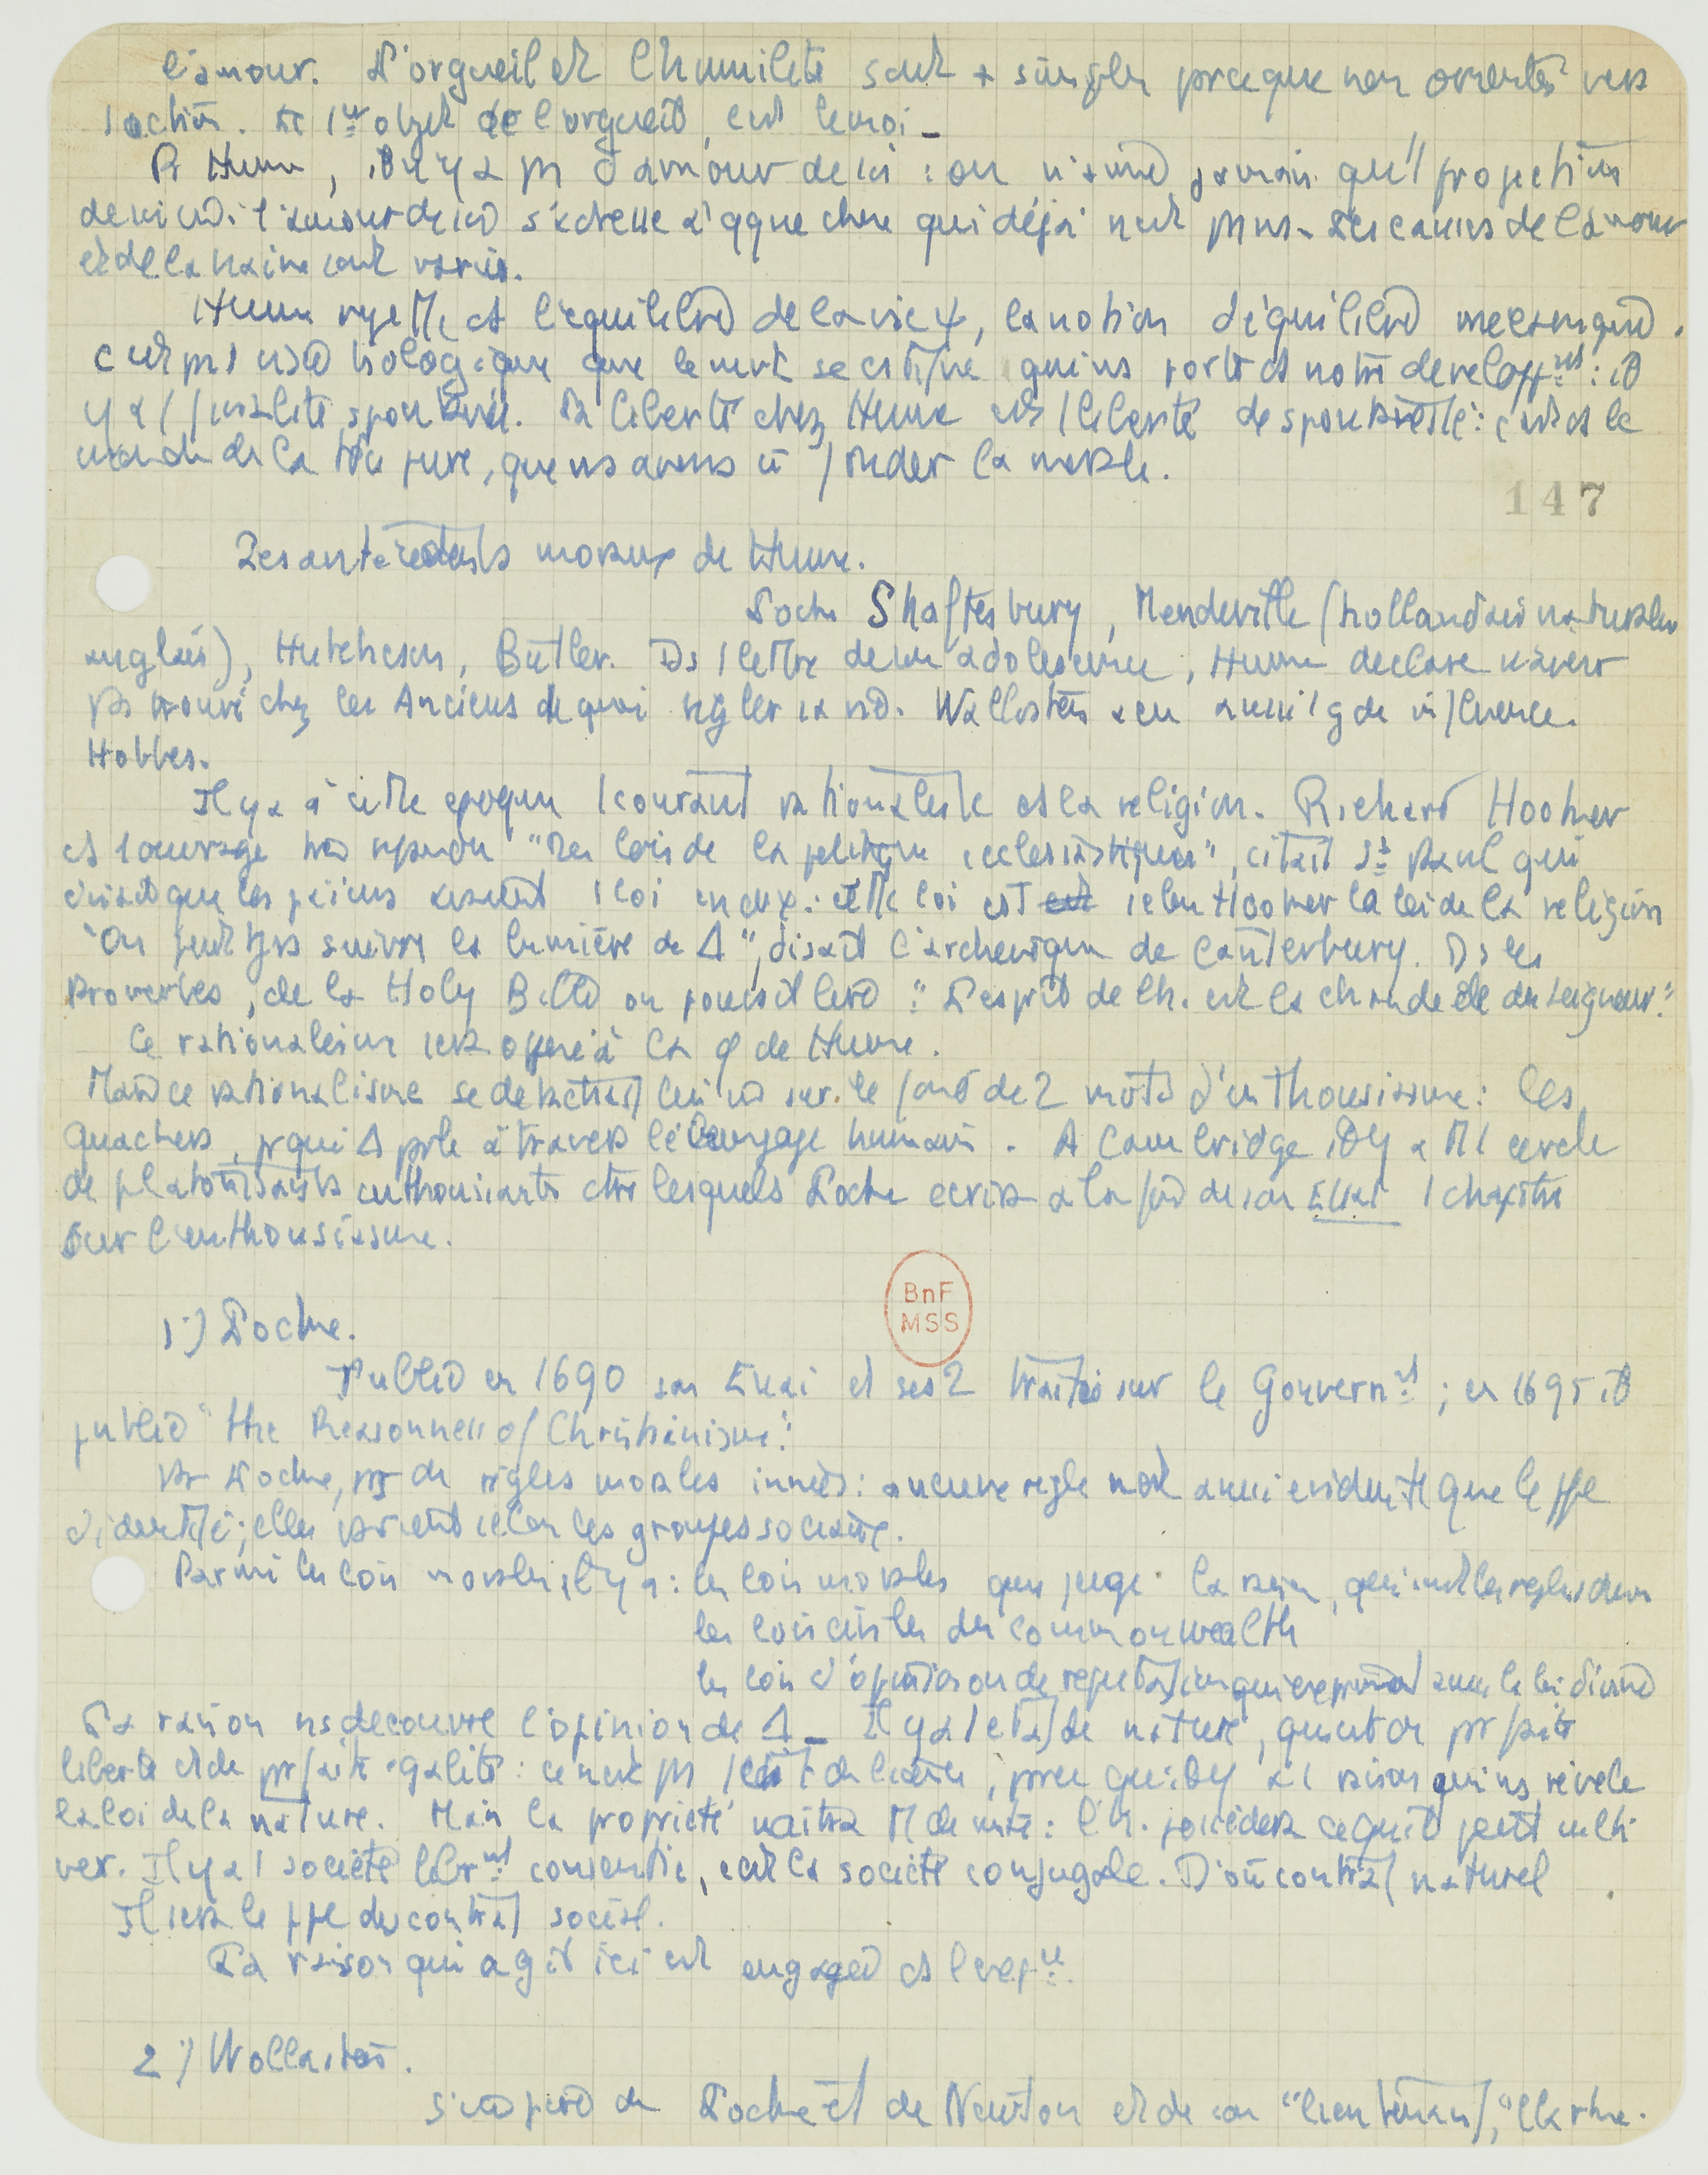 l'amour. L'orgueil et l'humilité sont + simples parce que non orientés vers
l'action. Le 1er objet de l'orgueil, est le moi_
Pr Hume, il n'y a pas d'amour de soi : on n'aime jamais qu'1 projection
de soi l'amour de soi s'adresse à qque chose qui déjà n'est pas ns. Les causes de l'amour
et de la haine sont variées.
Hume rejette ds l'équilibre de la vie ψ, la notion d'équilibre mécanique.
c'est ps 1 vie biologique que le qui ns porte ds notre developpnt : il
y a 1 finalité spontanée. La liberté chez Hume est 1 liberté de spontanéité : c'est ds le
monde de la pure, que ns avons à fonder la morale.
147
Les antécédents moraux de Hume.
Locke Shaftesbury, Mendeville (hollandais naturalisé
anglais), Hutcheson, Butler. Ds 1 lettre de son adolescence, Hume declare n'avoir
pas trouvé chez les Anciens de quoi régler sa vie. Wollaston a eu aussi 1 gde influence.
Hobbes.
Il y a à cette époque 1 courant rationaliste ds la religion. Richard Hooker
ds 1 ouvrage très répandu "Les lois de la politique ecclésiastiques", citait St Paul qui
disait que les païens avaient 1 loi en eux : cette loi est selon Hooker la loi de la religion
"On peut tjrs suivre la lumière de Δ", disait l'archevêque de Canterbury. Ds les
Proverbes, de la Holy Bible on pouvait lire : "L'esprit de l'h. est la chandelle du seigneur."
Ce rationalisme sera opposé à la φ de Hume.
Mais ce rationalisme se détachait lui-même sur le fond de 2 mvts d'enthousiasme : les
Quackers, pr qui Δ parle à travers le langage humain. A Cambridge il y a tt 1 cercle
de platonisants enthousiastes ctre lesquels Locke écrira à la fin de son Essai 1 chapitre
sur l'enthousiasme.
BnF
MSS
1°) Locke.
Publie en 1690 son Essai et ses 2 traités sur le Gouvernnt ; en 1695 il
publie "the Reasonness of Christianisme."
Pr Locke, pas de règles morales innées : aucune règle n'est aussi evidente que le ppe
d'identité ; elles varient selon les groupes sociaux.
Parmi les lois morales, il y a : les lois morales que juge la raison, qui sont les règles
les lois civiles du commonwealth
les lois d'opinion ou de reputation qui expriment aussi la loi divine
La raison ns découvre l'opinion de Δ_ Il y a 1 état de nature, qui est 1 parfaite
liberté et de parfaite égalité : ce n'est pas 1 état de licence, parce qu'il y a 1 raison qui ns révèle
la loi de la nature. Mais la propriété naîtra tt de suite : l'h. possèdera ce qu'il peut culti-
ver. Il y a 1 société librnt consentie, c'est la société conjugale. D'où contrat naturel
Il sera le ppe du contrat social.
La raison qui agit ici est engagée ds l'exp ce.
2°) Wollaston.
S'inspire de Locke et de Newton et de son "lieutenant", Clarke.